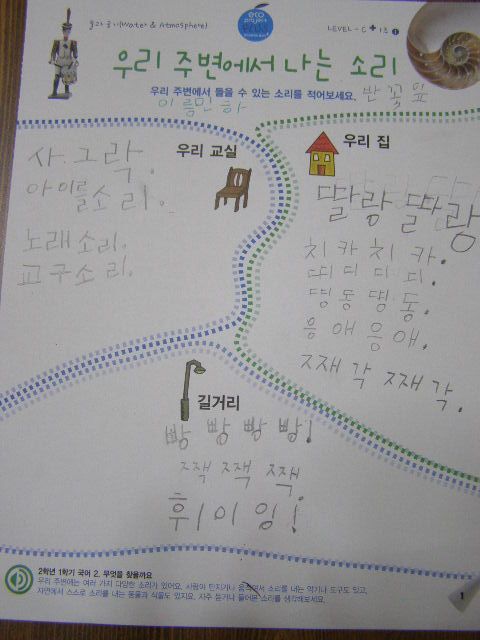 물과 공기(Water & Atmosphere)
eco
project
LEVEL - C + 1호 1
우리 주변에서 나는 소리
우리 주변에서 들을 수 있는 소리를 적어보세요. 반 꽃잎
이름 민하
우리 교실
사그락.
아이들소리.
노래소리.
교구소리.
우리 집
딸랑 딸랑
치카치카.
띠띠띠띠.
뎅동뎅동.
응애응애.
째각째각.
길거리
빵빵빵빵!
짹짹짹.
휘이잉!
2학년 1학기 국어 2. 무엇을 찾을까요
우리 주변에는 여러 가지 다양한 소리가 있어요. 사람이 만지거나 움직여서 소리를 내는 악기나 도구도 있고,
자연에서 스스로 소리를 내는 동물과 식물도 있지요. 자주 듣거나 들어본 소리를 생각해보세요.
1